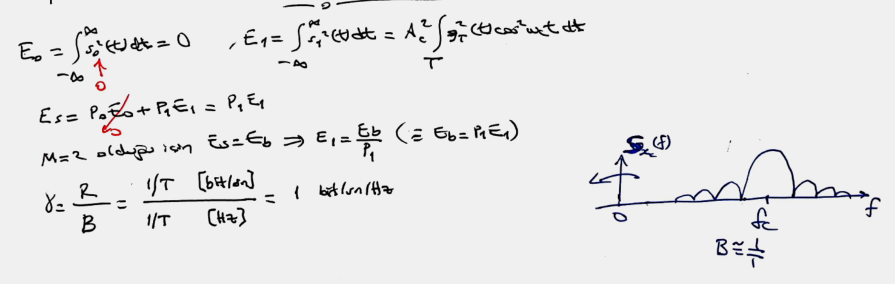 E₀ = ∫_{-∞}^{∞} s₀²(t)dt = 0 , E₁ = ∫_{-∞}^{∞} s₁²(t)dt = A_c² ∫_T g_T²(t)cos²ω_c t dt
0
E_s = P₀E₀ + P₁E₁ = P₁E₁
0
M=2 olduğu için E_s = E_b ⇒ E₁ = E_b/P₁ (≡ E_b = P₁E₁)
γ = R/B = 1/T [bit/sn] / 1/T [Hz] = 1 bit/sn/Hz
S_x(f)
0 f_c f
B ≅ 1/T